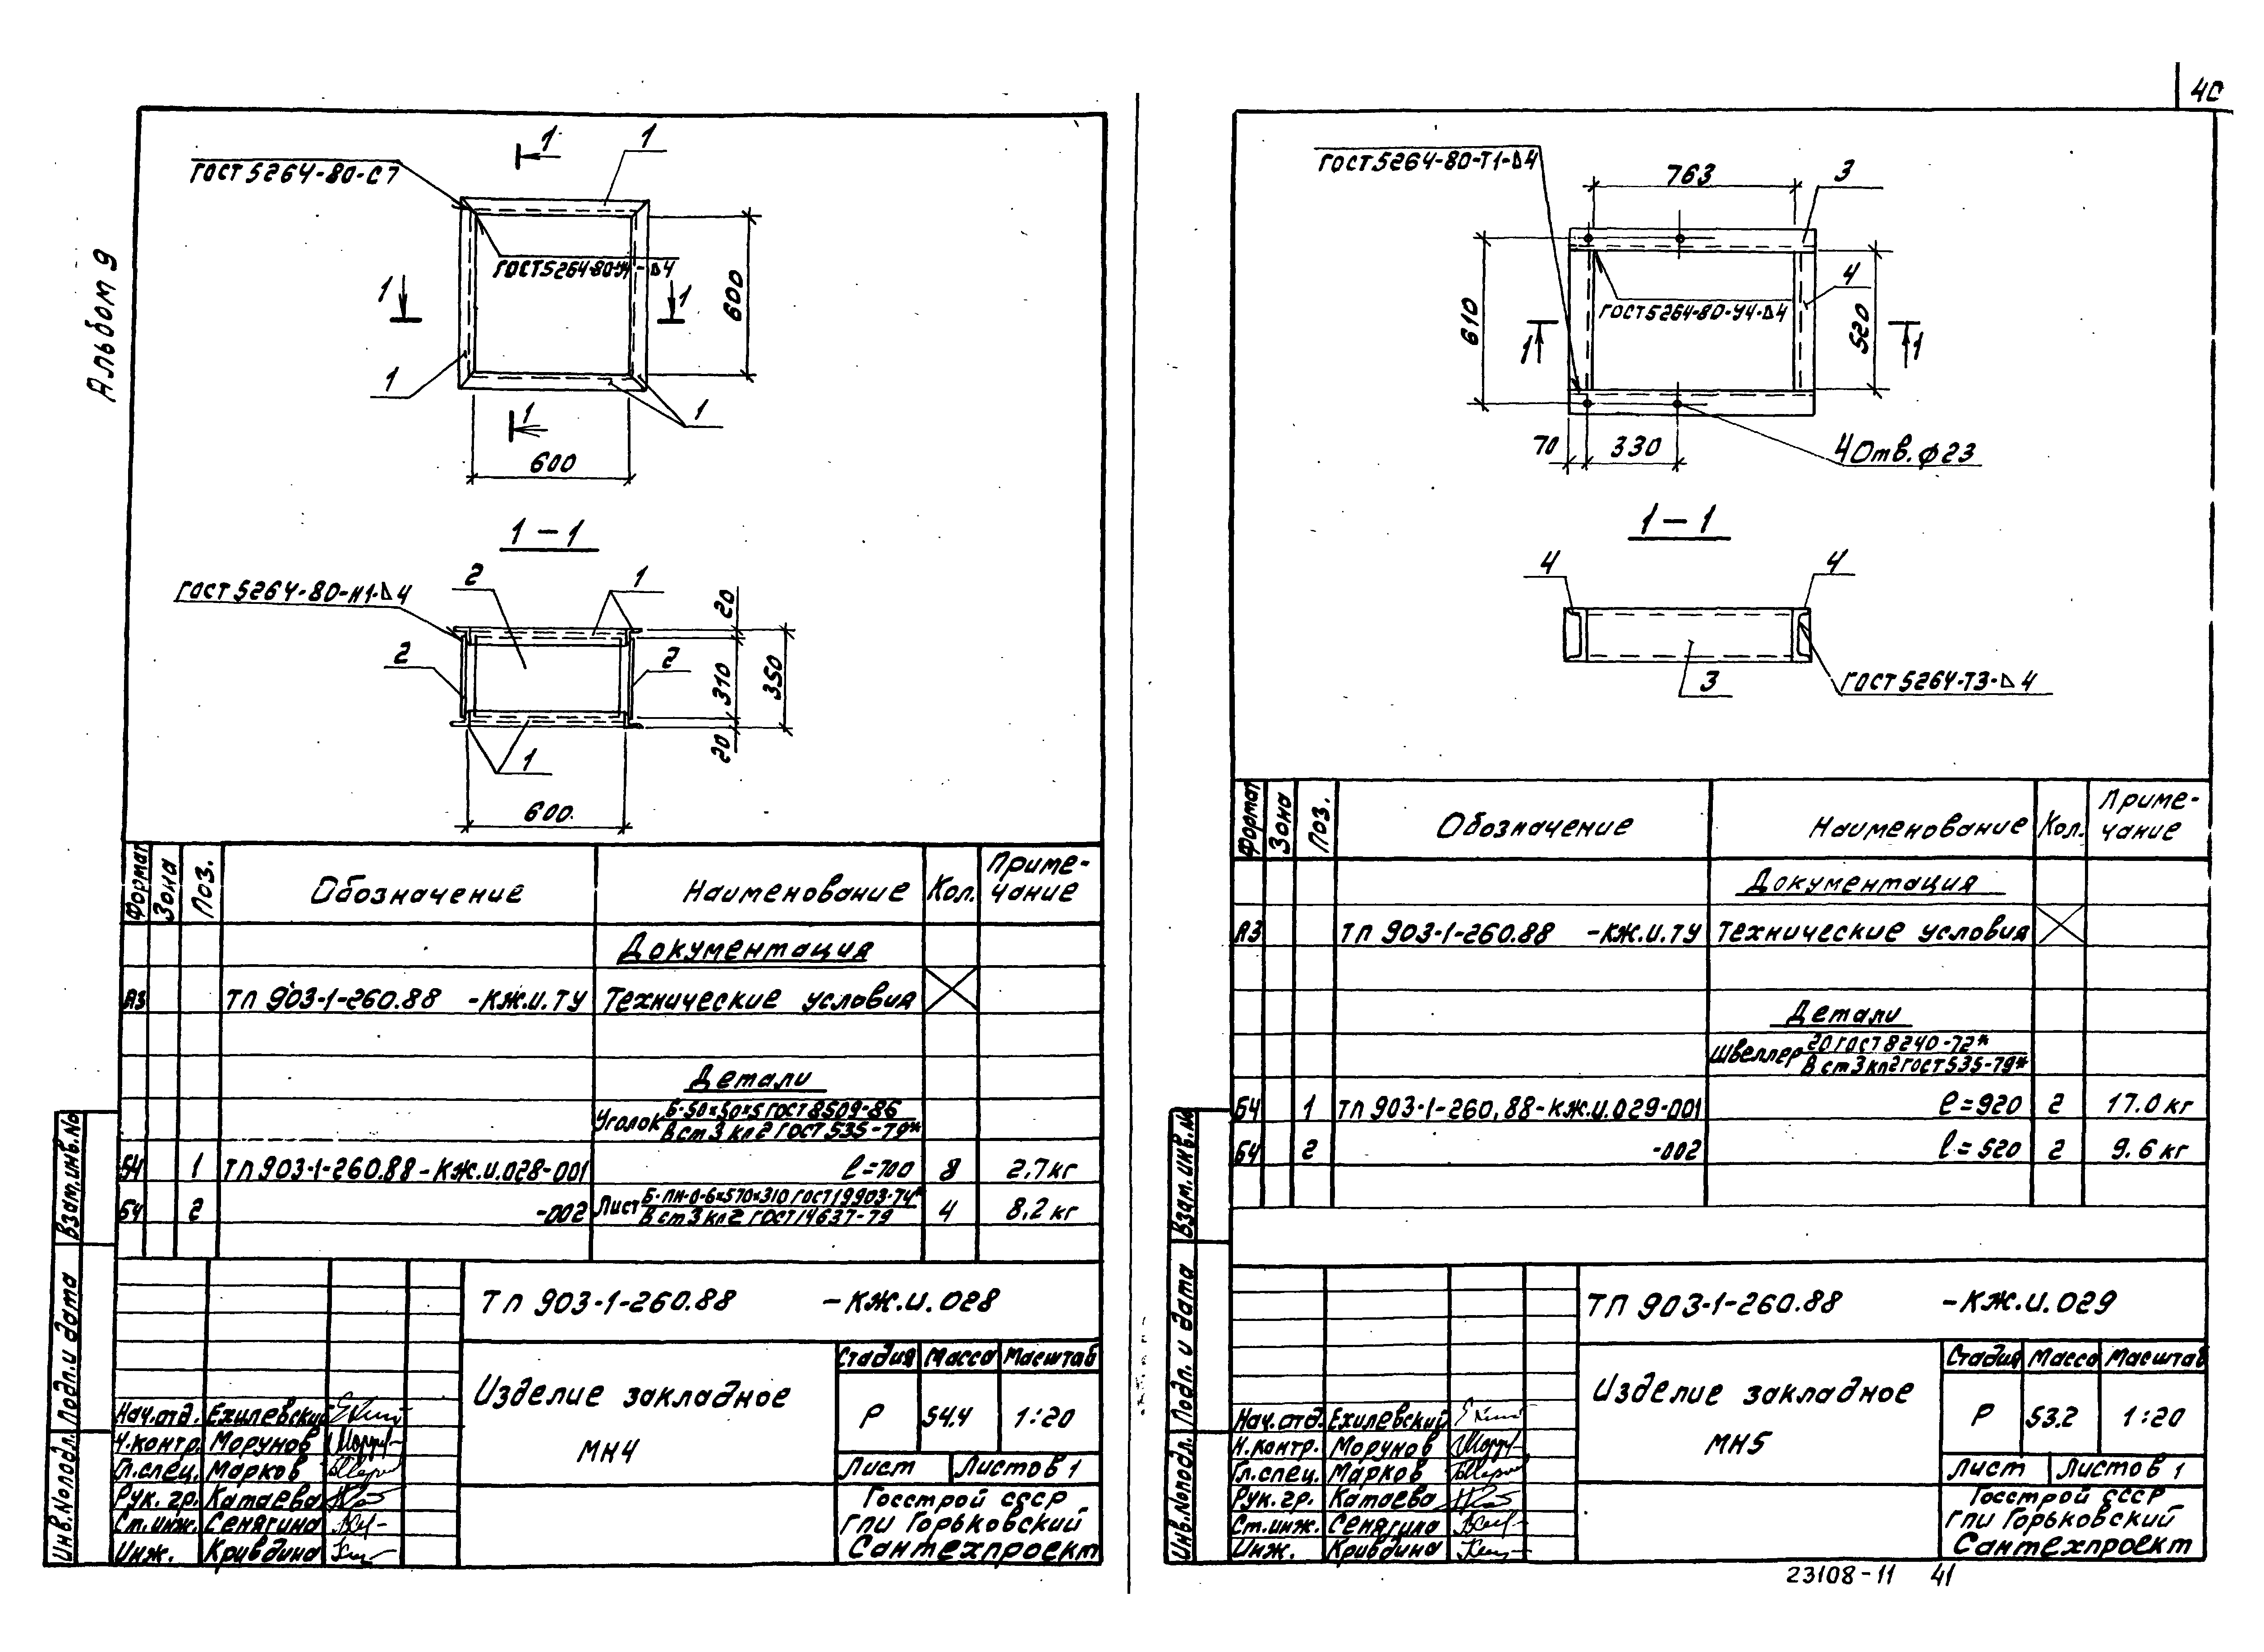 40
Альбом 9
1
1
ГОСТ 5264-80-С7
ГОСТ 5264-80-У4-△4
1
1
600
1
1
1
600
1-1
ГОСТ 5264-80-Н1-△4
2
1
20
2
2
310
350
20
1
600
Формат
Зона
Поз.
Обозначение
Наименование
Кол.
Приме-
чание
Документация
А3
ТП 903-1-260.88 -КЖ.И.ТУ
Технические условия
Детали
Уголок Б-50×50×5 ГОСТ 8509-86
В ст3 кп2 ГОСТ 535-79*
БЧ
1
ТП 903-1-260.88-КЖ.И.028-001
ℓ=700
8
2.7 кг
БЧ
2
-002
Лист Б-ПН-0-6×570×310 ГОСТ 19903-74*
В ст3 кп2 ГОСТ 14637-79
4
8,2 кг
Взам.инв.№
Подп.и дата
Инв.№подл.
ТП 903-1-260.88 -КЖ.И.028
Изделие закладное
МН4
Стадия
Масса
Масштаб
Р
54.4
1:20
Лист
Листов 1
Госстрой СССР
ГПИ Горьковский
Сантехпроект
Нач.отд. Ехилевский
Н.контр. Морунов
Гл.спец. Марков
Рук. гр. Катаева
Ст.инж. Сенягина
Инж. Кривдина
ГОСТ 5264-80-Т1-△4
763
3
4
ГОСТ 5264-80-У4-△4
610
520
1
1
70
330
4 отв. ϕ23
1-1
4
4
3
ГОСТ 5264-Т3-△4
Формат
Зона
Поз.
Обозначение
Наименование
Кол.
Приме-
чание
Документация
А3
ТП 903-1-260.88 -КЖ.И.ТУ
Технические условия
Детали
Швеллер 20 ГОСТ 8240-72*
В ст3 кп2 ГОСТ 535-79*
БЧ
1
ТП 903-1-260,88-КЖ.И.029-001
ℓ=920
2
17.0 кг
БЧ
2
-002
ℓ=520
2
9.6 кг
Взам.инв.№
Подп. и дата
Инв.№подл.
ТП 903-1-260.88 -КЖ.И.029
Изделие закладное
МН5
Стадия
Масса
Масштаб
Р
53.2
1:20
Лист
Листов 1
Госстрой СССР
ГПИ Горьковский
Сантехпроект
Нач.отд. Ехилевский
Н.контр. Морунов
Гл.спец. Марков
Рук. гр. Катаева
Ст.инж. Сенягина
Инж. Кривдина
23108-11 41